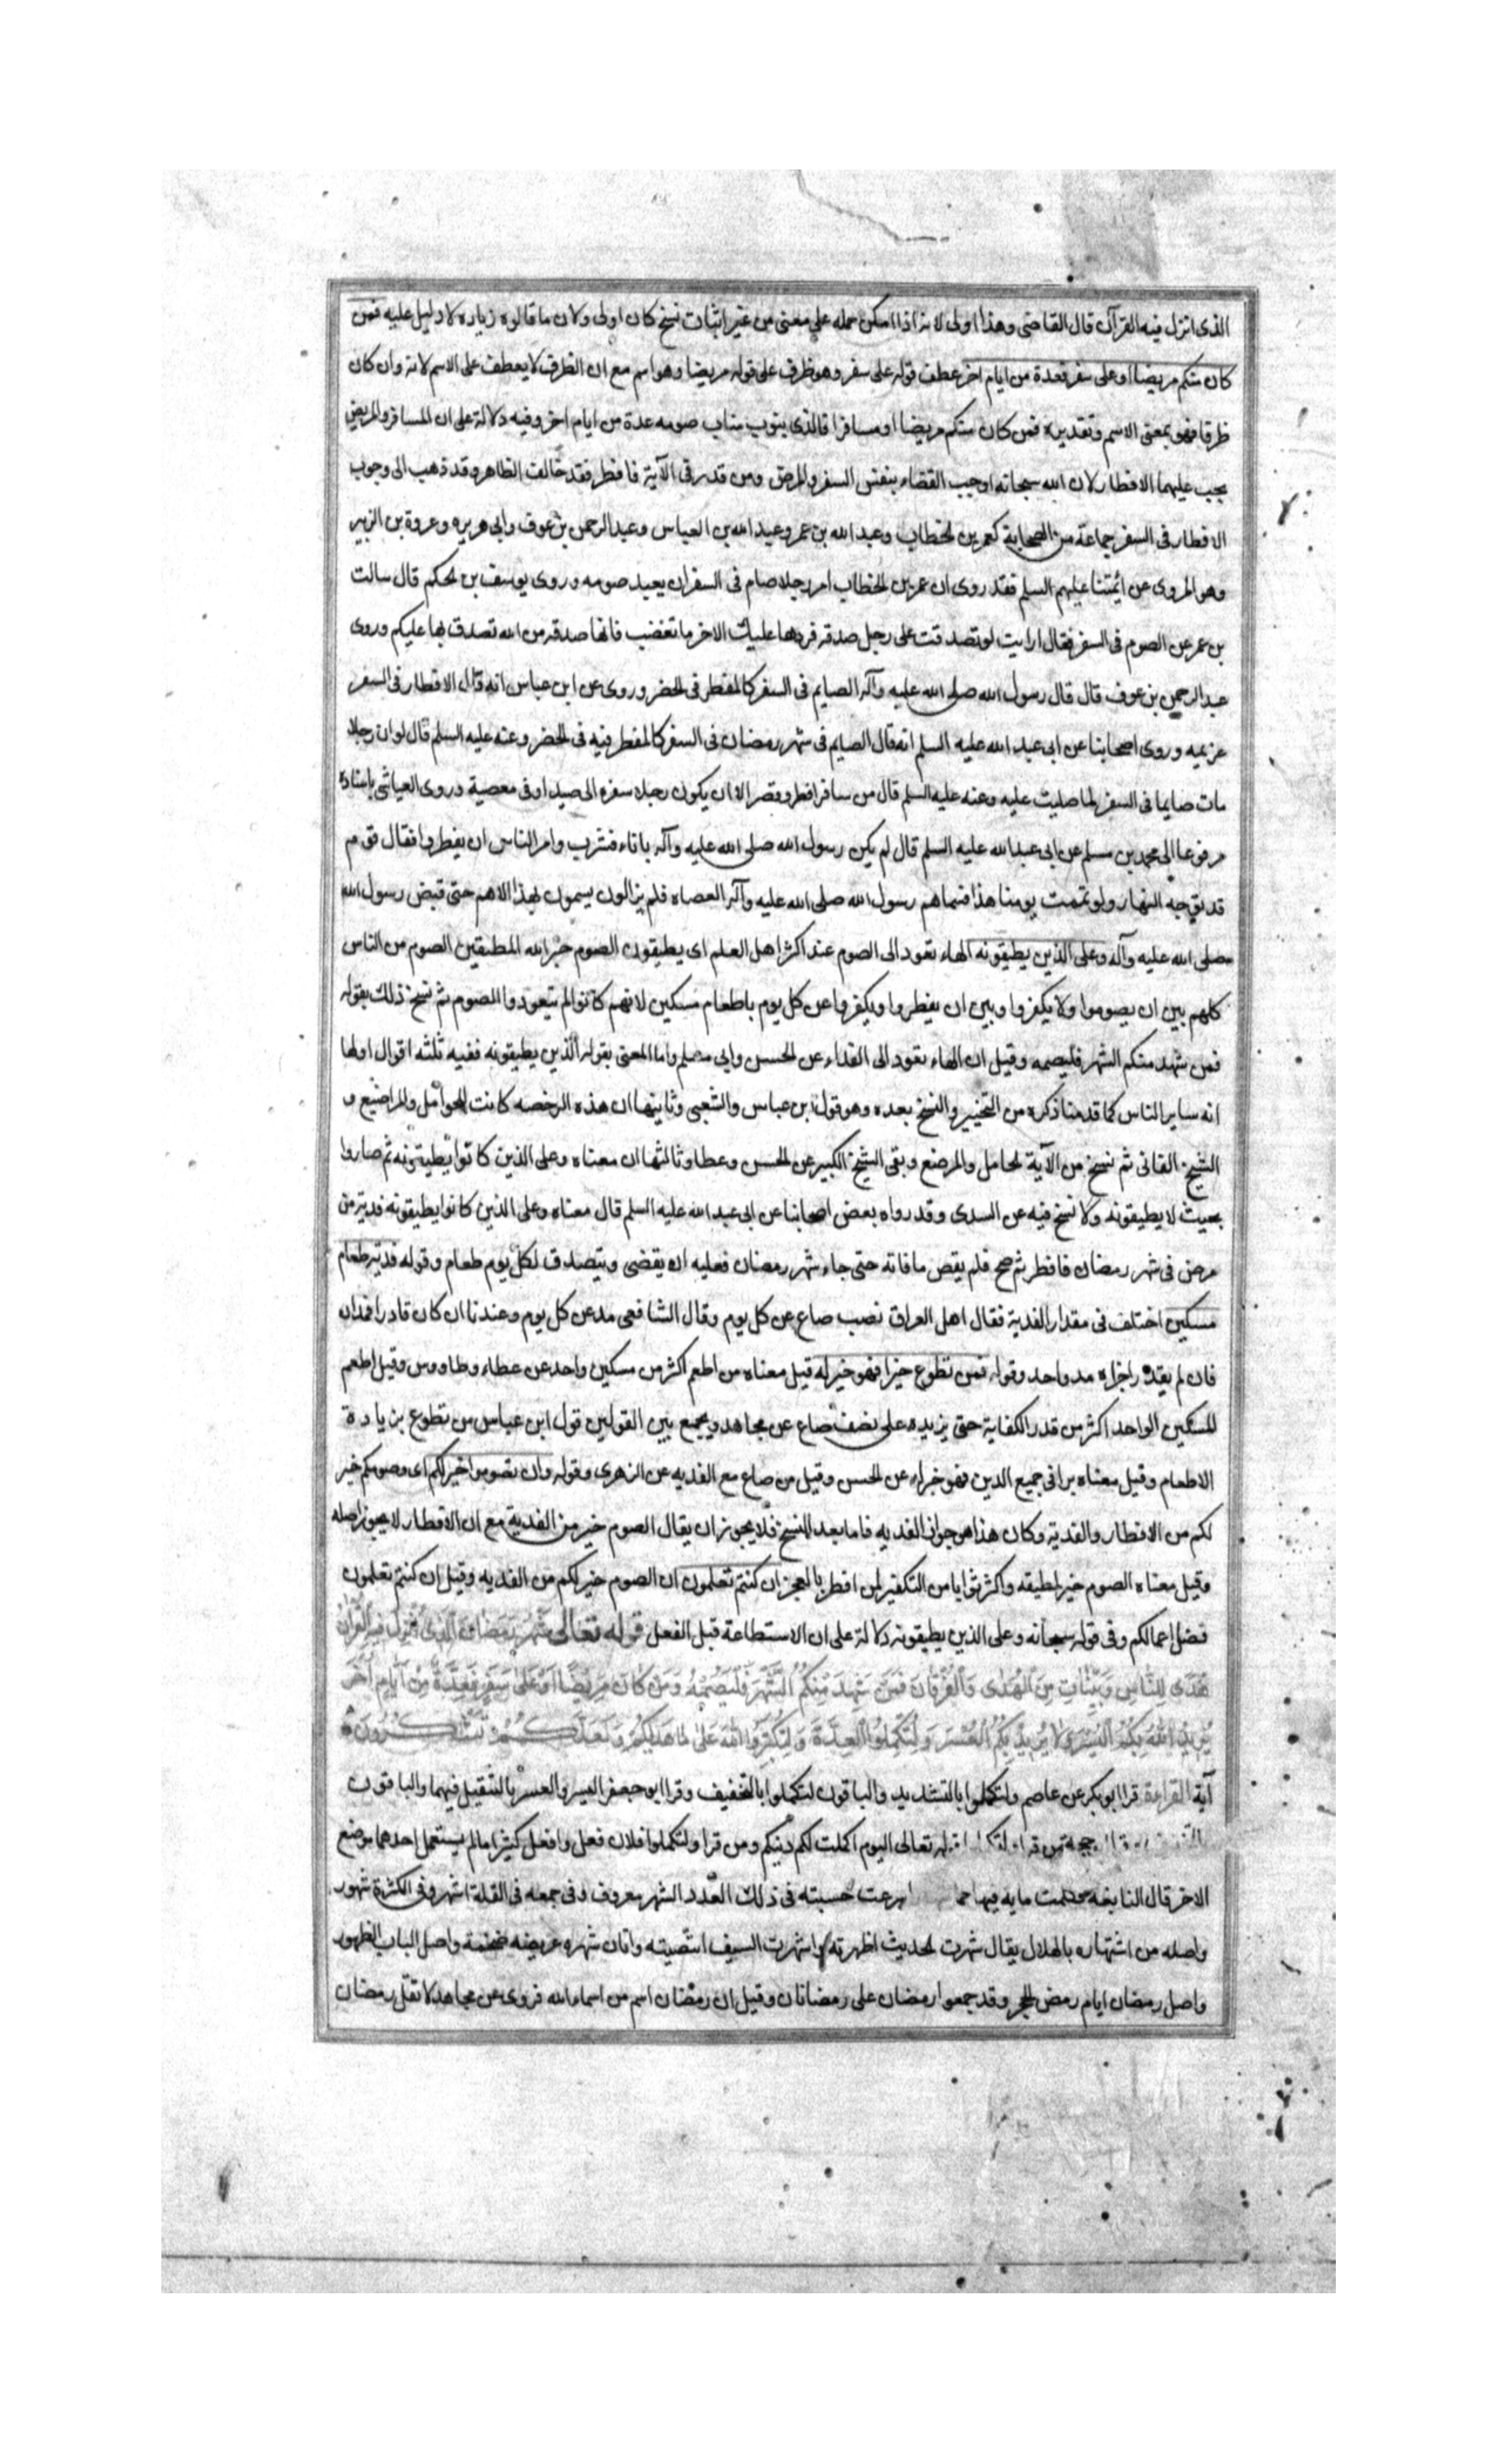 الذى انزل فيه القرآن قال القاضى وهذا اولى لانه اذا امكن حمله على معنى من غير اثبات نسخ كان اولى ولان ما قالوه زياده لا دليل عليه فمن
كان منكم مريضا او على سفر فعدة من ايام اخر عطف قوله على سفر وهو ظرف على قوله مريضا وهو اسم مع ان الظرف لا يعطف على الاسم لانه وان كان
ظرفا فهو بمعنى الاسم وتقديره فمن كان منكم مريضا او مسافرا فالذى ينوب مناب صومه عدة من ايام اخر وفيه دلالة على ان المسافر والمريض
يجب عليهما الافطار لان الله سبحانه اوجب القضاء بنفس السفر والمرض ومن قدر فى الآية فافطر فقد خالف الظاهر وقد ذهب الى وجوب
الافطار فى السفر جماعة من الصحابة كعمر بن الخطاب وعبد الله بن عمر وعبد الله بن العباس وعبد الرحمن بن عوف وابى هريره وعروة بن الزبير
وهو المروى عن ائمتنا عليهم السلم فقد روى ان عمر بن الخطاب امر رجلا صام فى السفر ان يعيد صومه وروى يوسف بن الحكم قال سالت
بن عمر عن الصوم فى السفر فقال ارايت لو تصدقت على رجل صدقه فردها عليك الاخر ما تغضب فانها صدقه من الله تصدق بها عليكم وروى
عبد الرحمن بن عوف قال قال رسول الله صلى الله عليه وآله الصايم فى السفر كالمفطر فى الحضر وروى عن ابن عباس انه قال الافطار فى السفر
عزيمه وروى اصحابنا عن ابى عبد الله عليه السلم انه قال الصايم فى شهر رمضان فى السفر كالمفطر فيه فى الحضر وعنه عليه السلم قال لو ان رجلا
مات صايما فى السفر لما صليت عليه وعنه عليه السلم قال من سافر افطر وقصر الا ان يكون رجلا سفره الى صيد او فى معصية وروى العياشى باسناده
مرفوعا الى محمد بن مسلم عن ابى عبد الله عليه السلم قال لم يكن رسول الله صلى الله عليه وآله باناء فشرب وامر الناس ان يفطروا فقال قوم
قد توجه النهار ولو تممت يومنا هذا فسماهم رسول الله صلى الله عليه وآله العصاه فلم يزالون يسمون بهذا الاسم حتى قبض رسول الله
صلى الله عليه وآله وعلى الذين يطيقونه الهاء تعود الى الصوم عند اكثر اهل العلم اى يطيقون الصوم خير الله المطيقين الصوم من الناس
كلهم بين ان يصوموا ولا يكفروا وبين ان يفطروا ويكفروا عن كل يوم باطعام مسكين لانهم كانوا لم يتعودوا الصوم ثم نسخ ذلك بقوله
فمن شهد منكم الشهر فليصمه وقيل ان الهاء تعود الى الفداء عن الحسن وابى مسلم واما المعنى بقوله الذين يطيقونه ففيه ثلثه اقوال اولها
انه ساير الناس كما قدمنا ذكره من التخيير والنسخ بعده وهو قول ابن عباس والشعبى وثانيها ان هذه الرخصه كانت للحوامل والمراضيع و
الشيخ الفانى ثم نسخ من الآية الحامل والمرضع وبقى الشيخ الكبير عن الحسن وعطا وثالثها ان معناه وعلى الذين كانوا يطيقونه ثم صاروا
بحيث لا يطيقونه ولا نسخ فيه عن السدى وقد رواه بعض اصحابنا عن ابى عبد الله عليه السلم قال معناه وعلى الذين كانوا يطيقونه فدية من
مرض فى شهر رمضان فافطر ثم صح فلم يقض ما فاته حتى جاء شهر رمضان فعليه ان يقضى ويتصدق لكل يوم طعام وقوله فدية طعام
مسكين اختلف فى مقدار الفدية فقال اهل العراق نصب صاع عن كل يوم وقال الشافعى مد عن كل يوم وعندنا ان كان قادرا فمدان
فان لم يقدر اجزاه مد واحد وقوله فمن تطوع خيرا فهو خير له قيل معناه من اطعم اكثر من مسكين واحد عن عطاء وطاووس وقيل اطعم
المسكين الواحد اكثر من قدر الكفاية حتى يزيده على نصف صاع عن مجاهد ويجمع بين القولين قول ابن عباس من تطوع بزيادة
الاطعام وقيل معناه برا فى جميع الدين فهو خير له عن الحسن وقيل من صاع مع الفديه عن الزهرى وقوله وان تصوموا خير لكم اى وصومكم خير
لكم من الافطار والفدية وكان هذا هو جواز الفديه فاما بعد النسخ فلا يجوز ان يقال الصوم خير من الفدية مع ان الافطار لا يجوز اصله
وقيل معناه الصوم خير لمطيقه واكثر ثوابا من التكفير لمن افطر بالعجز ان كنتم تعلمون ان الصوم خير لكم من الفديه وقيل ان كنتم تعلمون
فضل اعمالكم وفى قوله سبحانه وعلى الذين يطيقونه دلالة على ان الاستطاعة قبل الفعل قوله تعالى شَهْرُ رَمَضَانَ الَّذِى أُنْزِلَ فِيهِ الْقُرْآنُ
هُدًى لِلنَّاسِ وَبَيِّنَاتٍ مِنَ الْهُدَى وَالْفُرْقَانَ فَمَنْ شَهِدَ مِنْكُمُ الشَّهْرَ فَلْيَصُمْهُ وَمَنْ كَانَ مَرِيضًا اَوْ عَلَى سَفَرٍ فَعِدَّةٌ مِنْ أَيَّامٍ أُخَرَ
يُرِيدُ اللهُ بِكُمُ الْيُسْرَ وَلَا يُرِيدُ بِكُمُ الْعُسْرَ وَلِتُكْمِلُوا الْعِدَّةَ وَلِتُكَبِّرُوا اللهَ عَلَى مَا هَدَيكُمْ وَلَعَلَّكُمْ تَشْكُرُونَ
آية القراءة قرا ابو بكر عن عاصم ولتكملوا بالتشديد والباقون لتكملوا بالتخفيف وقرا ابو جعفر اليسر والعسر بالتثقيل فيهما والباقون
حجة من قرا قوله تعالى اليوم اكملت لكم دينكم ومن قرا ولتكملوا فلان فعل وافعل كثيرا ما لم يستعمل احدهما موضع
الاخر قال النابغه مايه فيها حسبته فى ذلك العدد الشهر معروف وفى جمعه فى القلة اشهر وفى الكثرة شهور
واصله من اشتهاره بالهلال يقال شهرت الحديث اظهرته واشهرت السيف انتضيته واتان شهره عريضه ضخمة واصل الباب الظهور
واصل رمضان ايام رمض الحر وقد جمعوا رمضان على رمضانات وقيل ان رمضان اسم من اسماء الله فروى عن مجاهد لا تقل رمضان